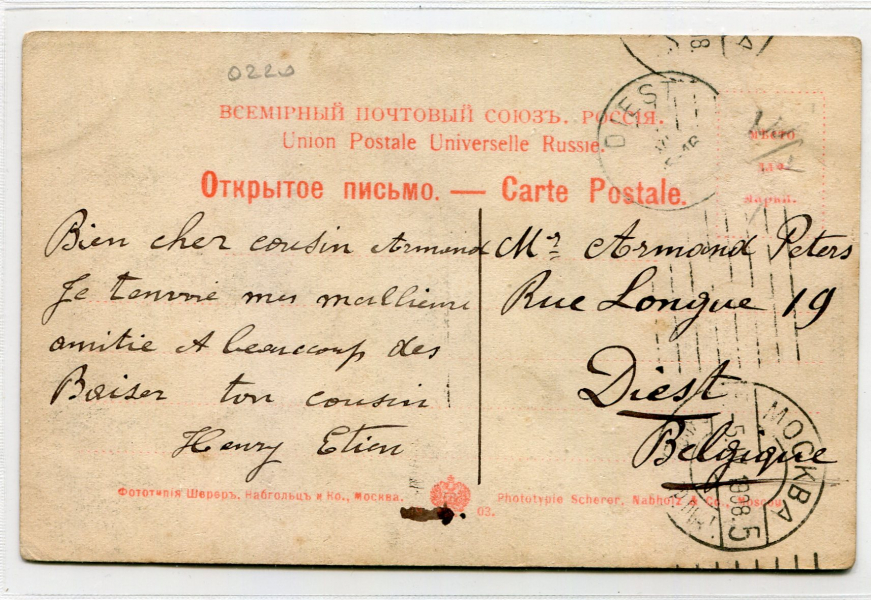 0220
ВСЕМІРНЫЙ ПОЧТОВЫЙ СОЮЗЪ. РОССІЯ.
Union Postale Universelle Russie.
Открытое письмо. — Carte Postale.
DIEST
мѣсто
для
марки.
Bien cher cousin Armand
Je tenvoie mes mellieure
amitie et beaucoup des
Baiser ton cousin
Henry Etien
Mr Armand Peters
Rue Longue 19
Diest
Belgique
МОСКВА
5
1908
5
Фототипія Шереръ, Набгольцъ и Ко., Москва.
03.
Phototypie Scherer, Nabholz & Co., Moscou